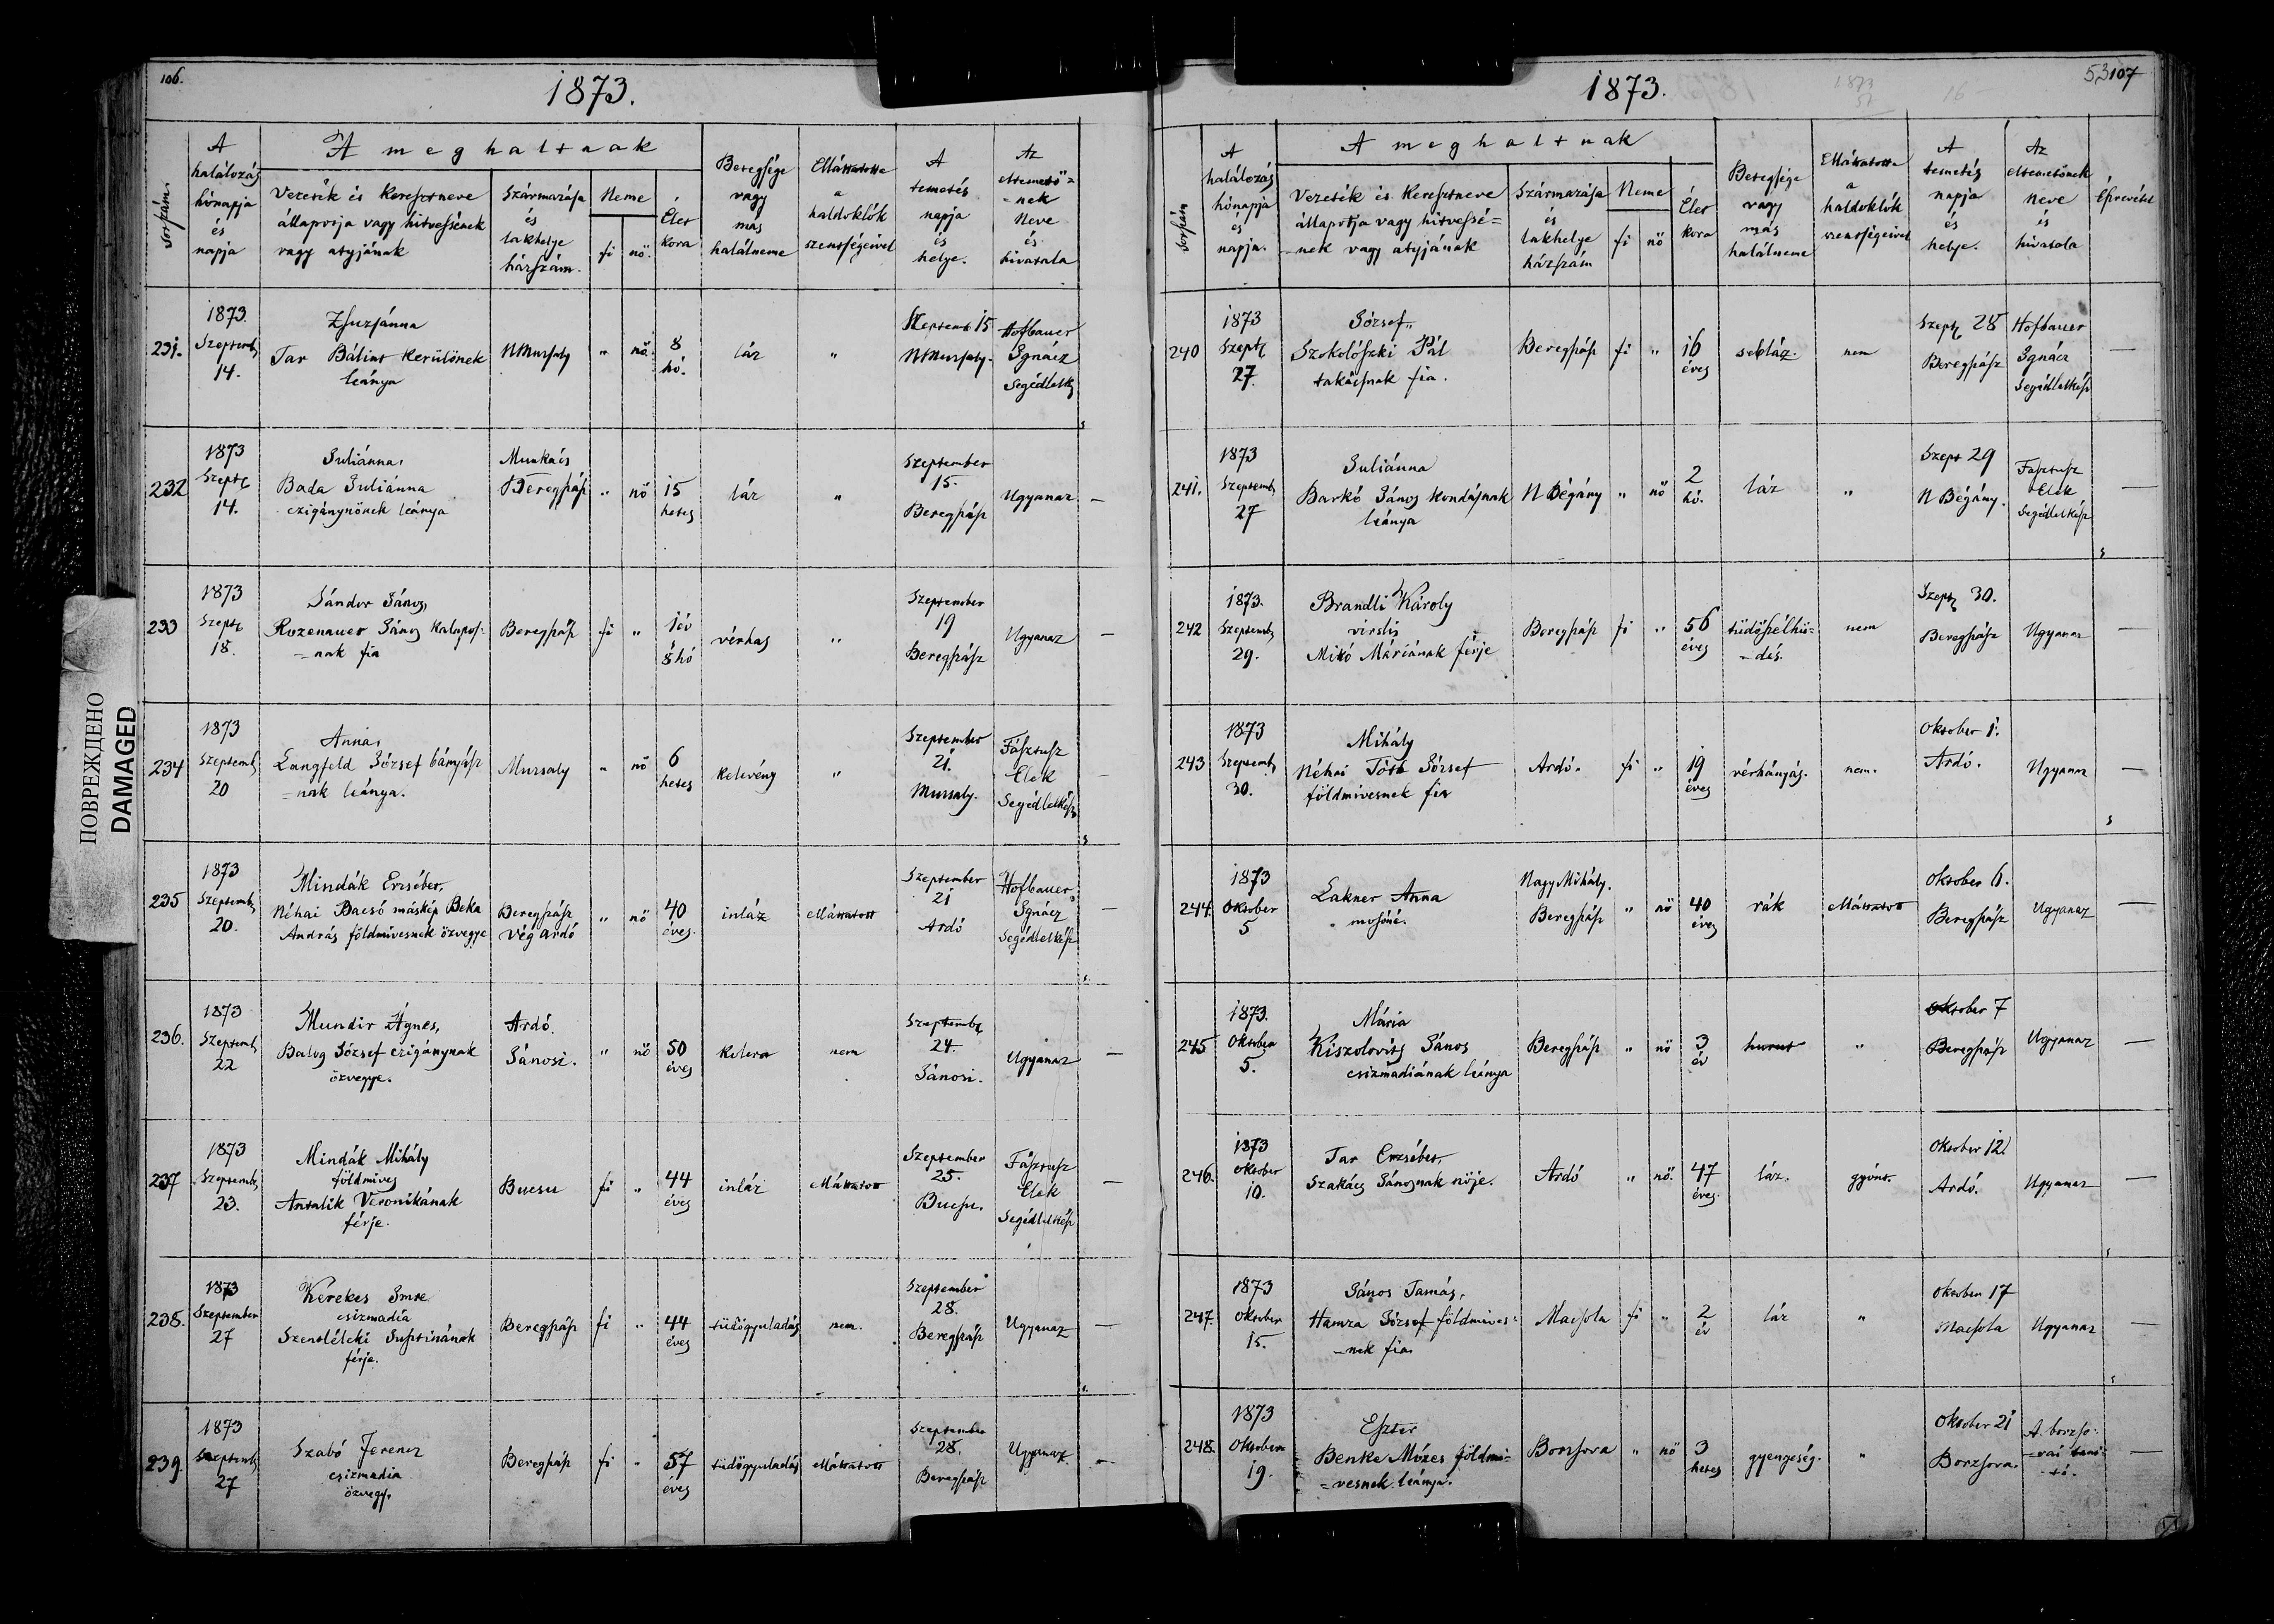 106.
1873.
Sorszám
A halálozás hónapja és napja
A meghaltnak
Vezeték és Keresztneve állapotja vagy hitvessének vagy atyjának
Származása és lakhelye házszám.
Neme
fi
nő.
Élet kora
Betegsége vagy más halálneme
Elláttatott-e a haldoklók szentségeivel
A temetés napja és helye.
Az eltemető=
=nek Neve és hivatala
231.
1873.
Szeptemb
14.
Zsuzsánna
Tar Bálint Kerülőnek
leánya
NMuzsaly
"
nő.
8
hó.
láz
"
Septemb 15
NMuzsaly.
Hofbauer
Ignácz
Segédlelk
232
1873
Szept
14.
Juliánna,
Bada Juliánna
czigánynőnek leánya
Munkács
Beregszász
"
nő
15
hetes
láz
"
Szeptember
15.
Beregszász
Ugyanaz
—
233
1873
Szept
18.
Sándor János,
Rozenauer János Kalapos=
=nak fia
Beregszász
fi
"
1 év
8 hó
vérhas
"
Szeptember
19
Beregszász
Ugyanaz
—
234
1873
Szeptemb
20
Anna,
Langfeld József bányász
=nak leánya.
Muzsaly
"
nő
6
hetes
kelevény
"
Szeptember
21.
Muzsaly.
Fásztusz
Elek
Segédlelkész
—
235
1873
Szeptemb
20.
Mindák Erzsébet,
Néhai Bacsó máskép Beka
András földmivesnek özvegye
Beregszász
Vég Ardó
"
nő
40
éves.
inláz
elláttatott
Szeptember
21
Ardó
Hofbauer
Ignácz
Segédlelkész
—
236.
1873
Szeptemb
22
Mundir Ágnes,
Balog József czigánynak
özvegye.
Ardó.
Jánosi.
"
nő
50
éves
kolera
nem
Szeptemb
24.
Jánosi.
Ugyanaz
—
237
1873
Szeptemb
23.
Mindák Mihály
földmives
Antalik Veronikának
férje.
Bucsu
fi
"
44
éves
inláz
elláttatott
Szeptember
25.
Bucsu.
Fásztusz
Elek
Segédlelkész
—
238.
1873
Szeptember
27
Kerekes Imre
csizmadia
Szentléleki Jusztinának
férje.
Beregszász
fi
"
44
éves
tüdőgyuladás
nem.
Szeptember
28.
Beregszász
Ugyanaz
—
239.
1873
Szeptemb
27
Szabó Ferencz
csizmadia
özvegy.
Beregszász
fi
"
57
éves
tüdőgyuladás
elláttatott
Szeptember
28.
Beregszász
Ugyanaz
—
53
107
1873.
1873
51
16
Sorszám
A halálozás hónapja és napja.
A meghaltnak
Vezeték és Keresztneve állapotja vagy hitvessé=
=nek vagy atyjának
Származása és lakhelye házszám
Neme
fi
nő
Élet kora
Betegsége vagy más halálneme
Elláttatott-e a haldoklók szentségeivel
A temetés napja és helye.
Az eltemetőnek neve és hivatala
Észrevétel
240
1873
Szept
27.
József,
Szokolószki Pál
takácsnak fia.
Beregszász
fi
"
16
éves
sebláz.
nem
Szept 28
Beregszász
Hofbauer
Ignácz
Segédlelkész
—
241.
1873
Szeptemb
27
Juliánna
Barkó János kondásnak
leánya
N Bégány
"
nő
2
hó.
láz
"
Szept 29
N Bégány.
Fásztusz
Elek
Segédlelkész
—
242
1873.
Szeptemb
29.
Brandli Károly
Mikó Máriának férje
Beregszász
fi
"
56
éves
tüdőszélhü=
=dés.
nem
Szept 30.
Beregszász
Ugyanaz
—
243
1873
Szeptemb
30.
Mihály
Néhai Tóth József
földmivesnek fia
Ardó.
fi
"
19
éves
vérhányás.
nem.
Oktober 1.
Ardó.
Ugyanaz
—
244.
1873
Oktober
5
Lakner Anna
mosóné.
Nagy Mihály.
Beregszász
"
nő
40
éves
rák
elláttatott
Oktober 6.
Beregszász
Ugyanaz
—
245
1873.
Oktober
5.
Mária
Kiszolovits János
csizmadiának leánya
Beregszász
"
nő
3
év
hurut
"
Oktober 7
Beregszász
Ugyanaz
—
246.
1873
Oktober
10.
Tar Erzsébet,
Szakács Jánosnak nője.
Ardó
"
nő.
47
éves.
láz.
gyónt.
Oktober 12.
Ardó.
Ugyanaz
—
247.
1873
Oktober
15.
János Tamás,
Hamza József földmives=
=nek fia.
Macsola
fi
"
2
év
láz
"
Oktober 17
Macsola
Ugyanaz
—
248.
1873
Oktober
19.
Eszter
Benke Mózes földmi=
=vesnek leánya.
Borzsova
"
nő
3
hetes
gyengeség.
"
Oktober 21
Borzsova.
A borzso=
=vai tani=
=tó.
—
ПОВРЕЖДЕНО
DAMAGED